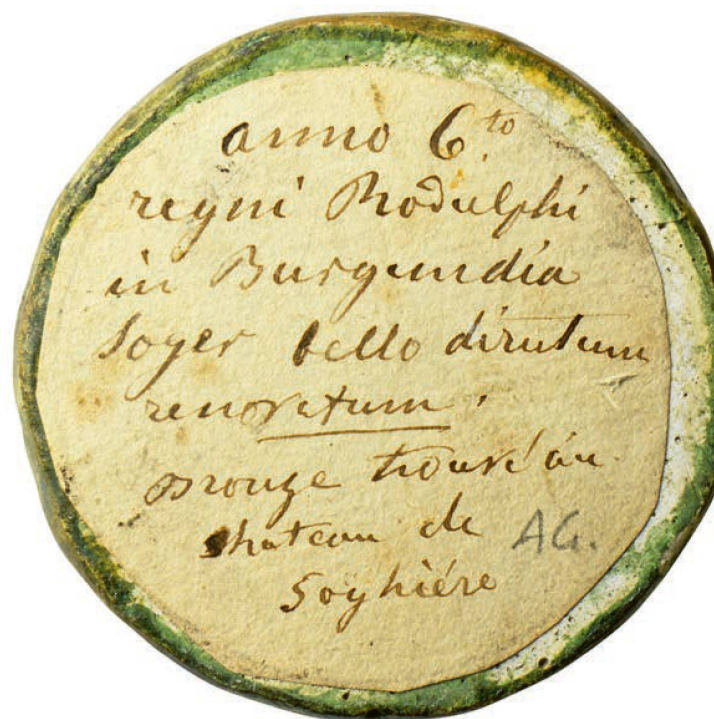 anno 6.to
regni Rodulphi
in Burgundia
Soger bello dirutum
renovatum.
Bronze trouvé au
chateau de AG.
Soyhiére